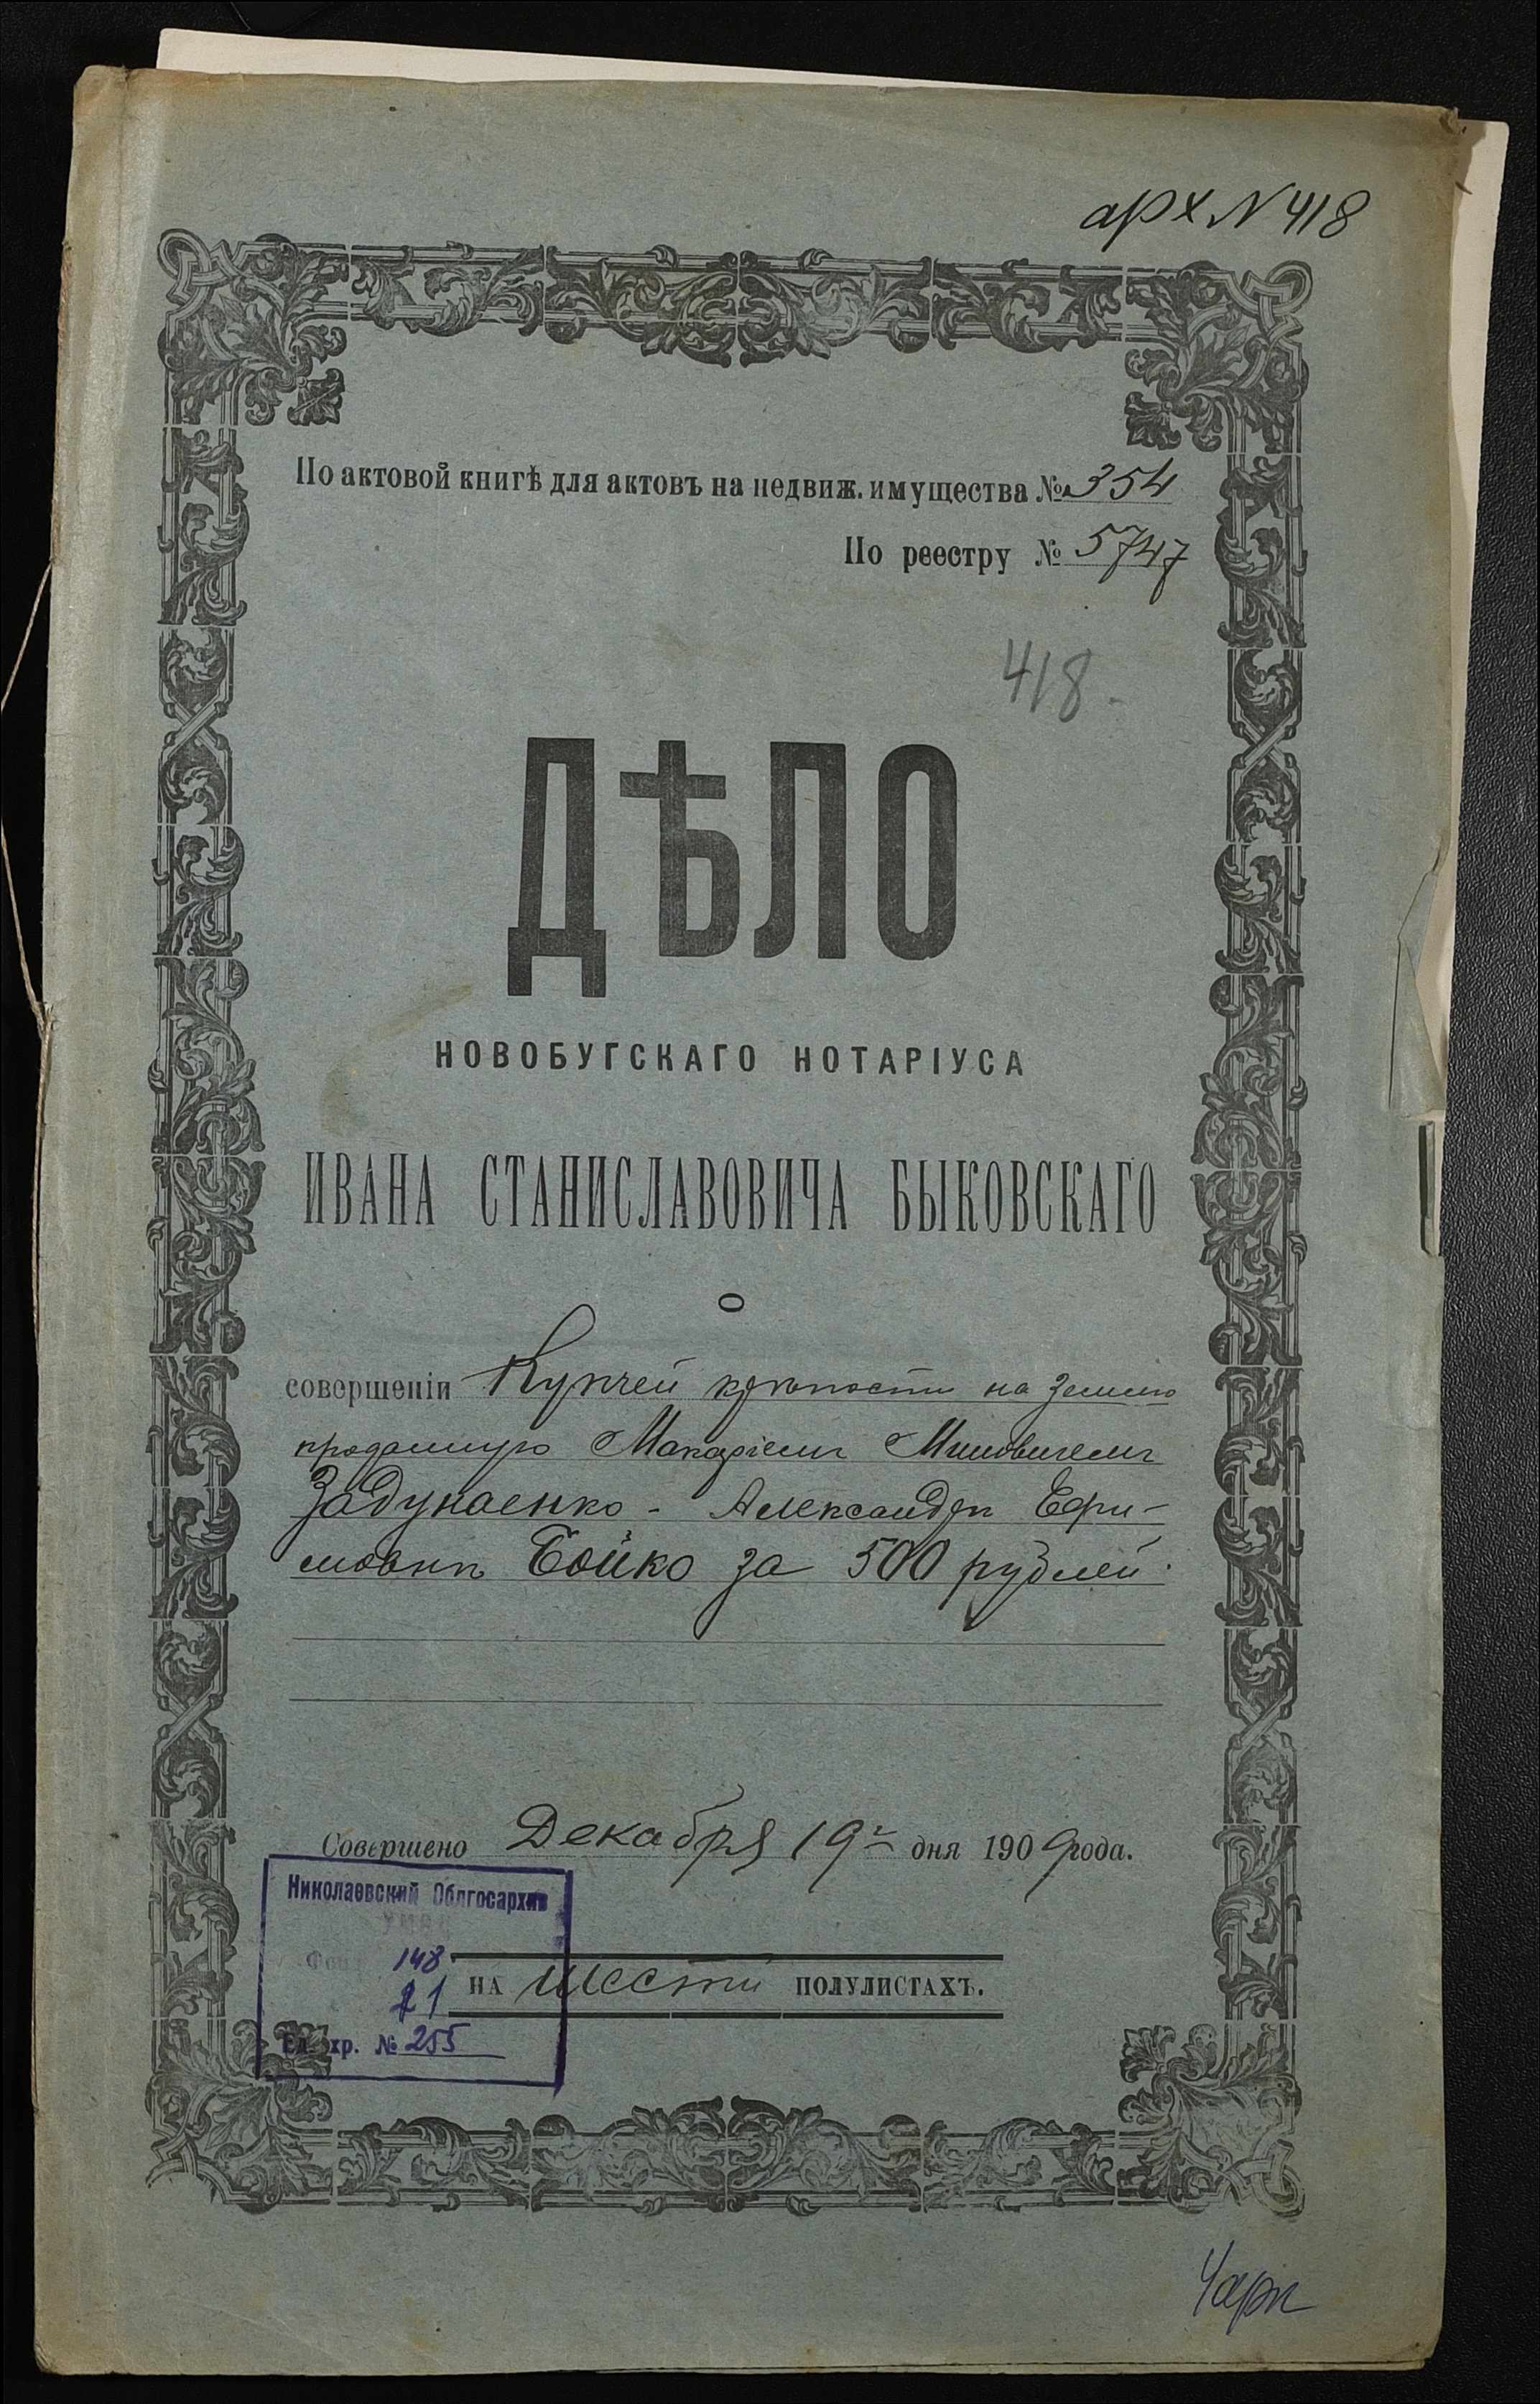 арх N 418
По актовой книгѣ для актовъ на недвиж. имущества № 354
По реестру № 5747
418.
ДѢЛО
НОВОБУГСКАГО НОТАРІУСА
ИВАНА СТАНИСЛАВОВИЧА БЫКОВСКАГО
О
совершеніи Купчей крѣпости на землю
проданную Макаріемъ Миновичемъ
Задунаенко - Александрѣ Ефи-
мовнѣ Бойко за 500 рублей.
Совершено Декабря 19 дня 1909 года.
Николаевский Облгосархив
Фонд 148
1
НА шести ПОЛУЛИСТАХЪ.
Ед. хр. № 255